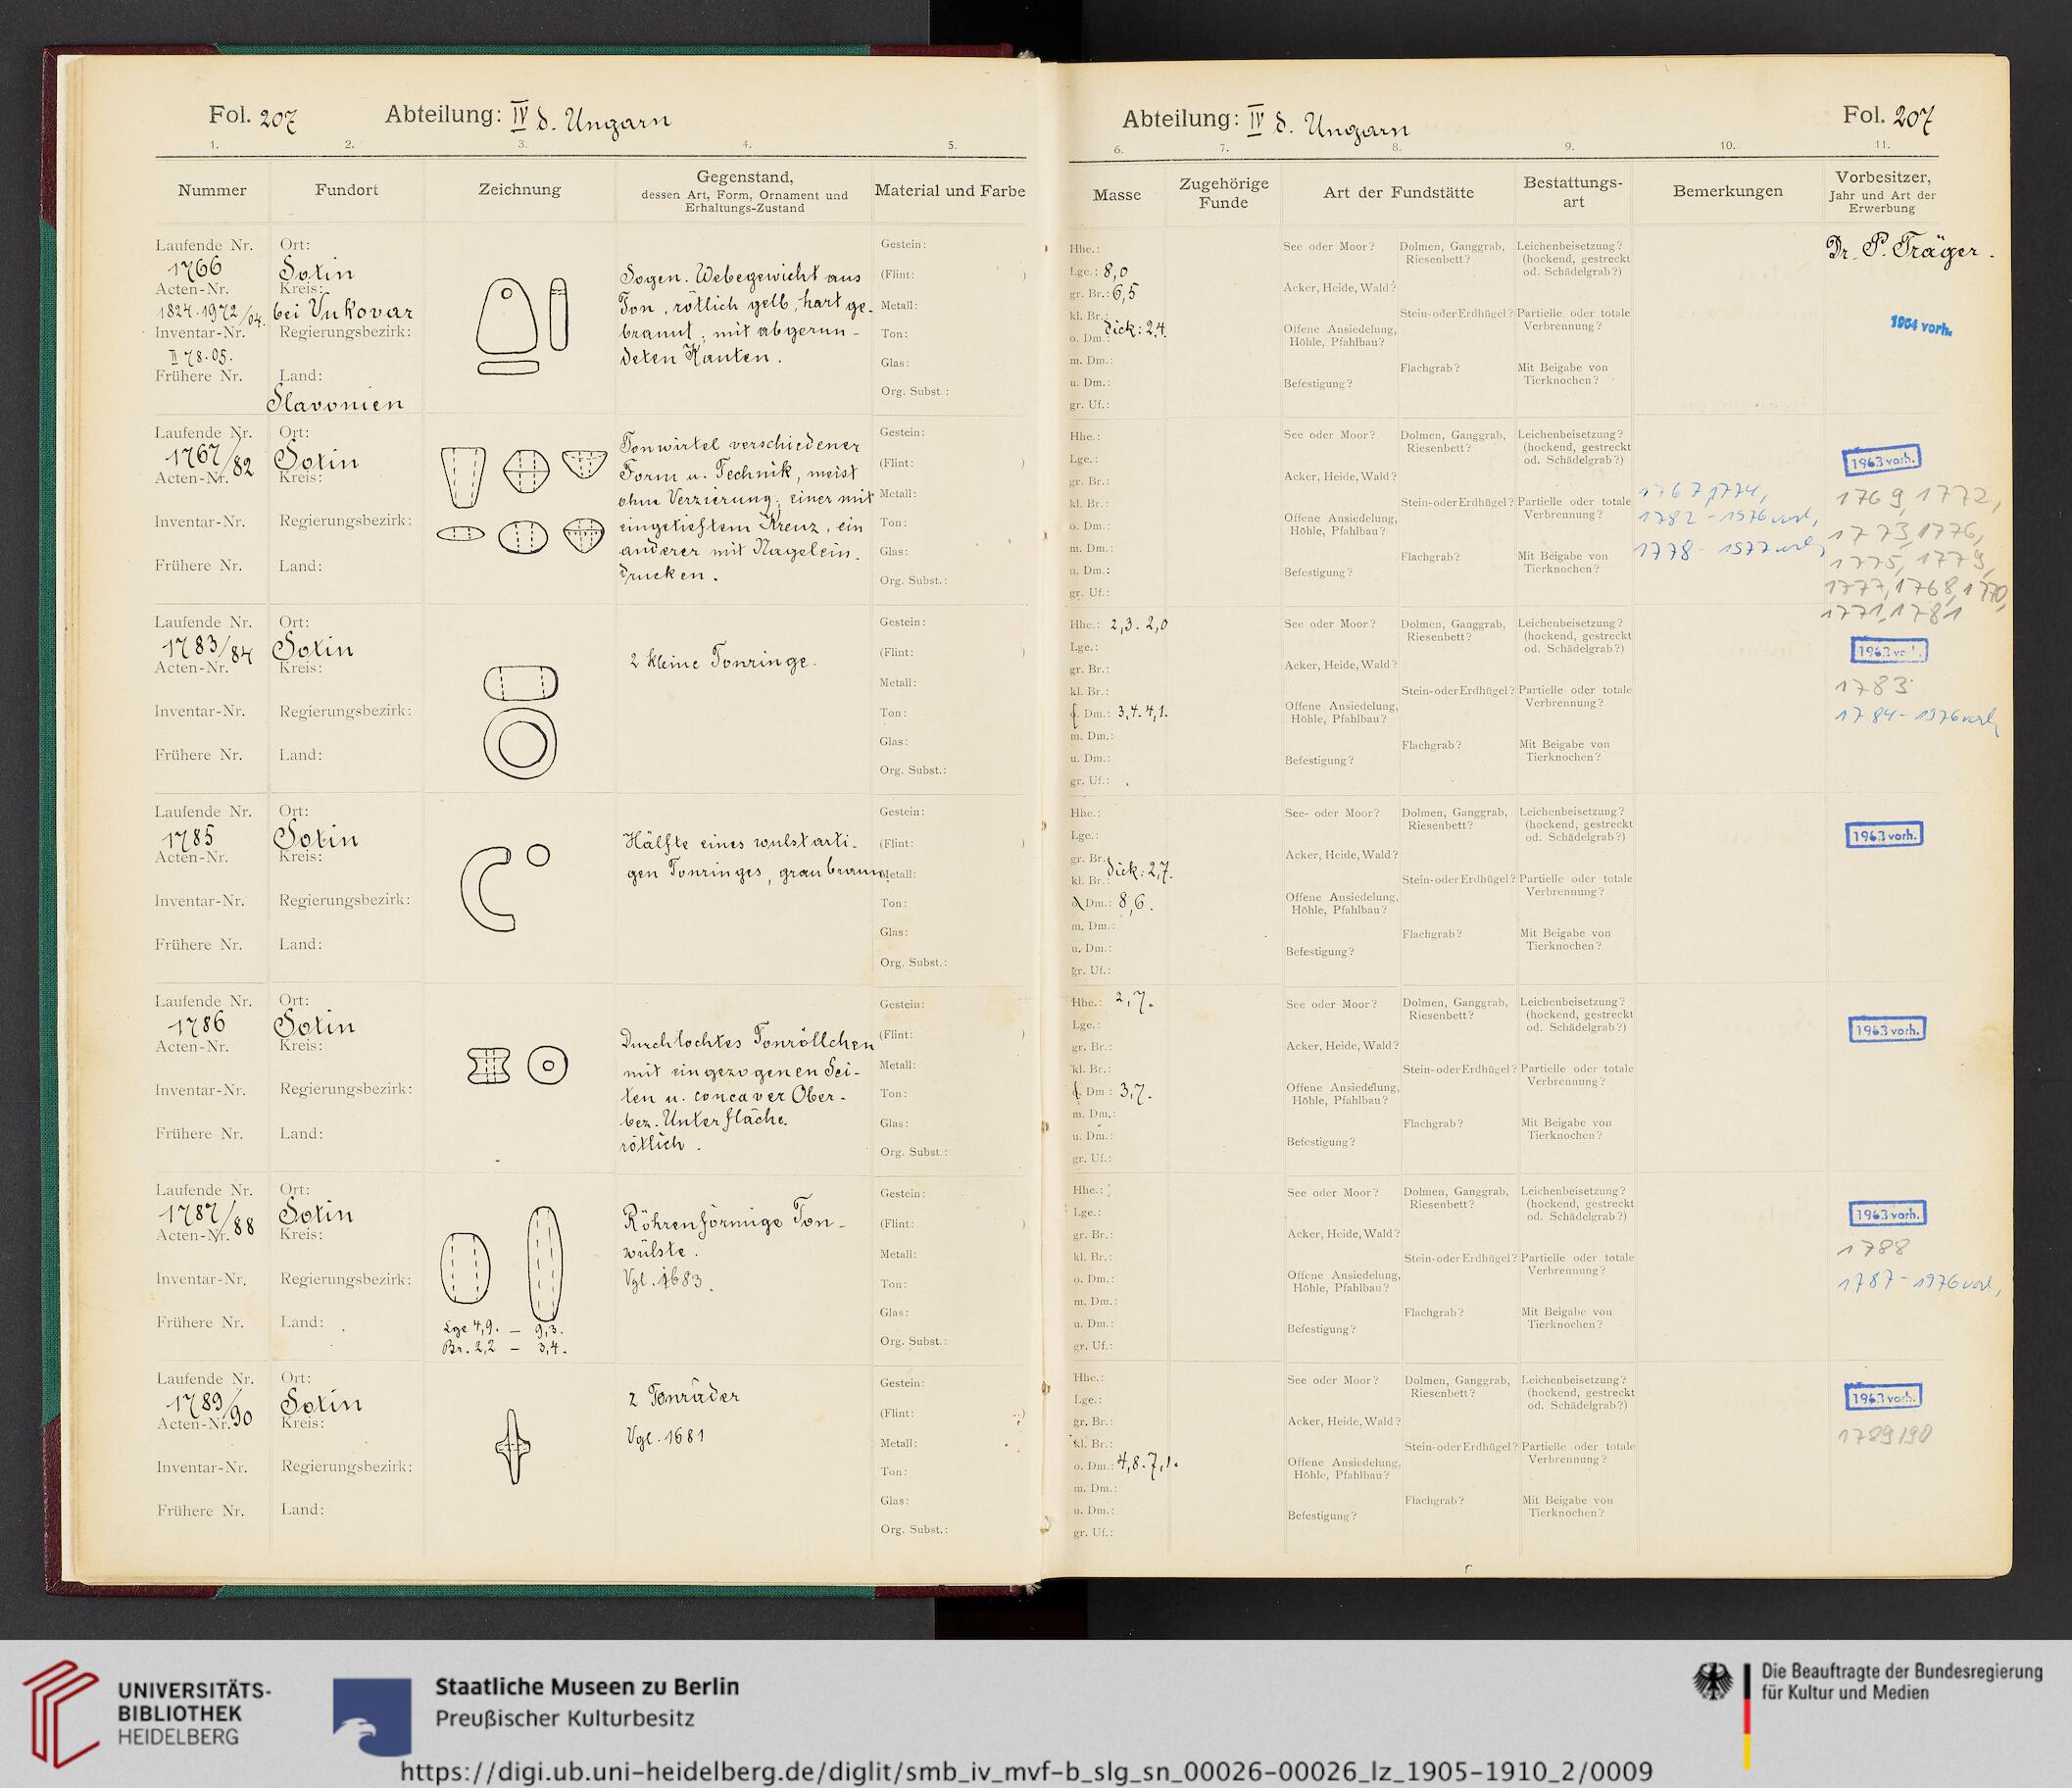 Fol. 207
Abteilung: IV d. Ungarn
1. 2. 3. 4. 5.
Nummer
Fundort
Zeichnung
Gegenstand,
dessen Art, Form, Ornament und
Erhaltungs-Zustand
Material und Farbe
Laufende Nr.
1766
Acten-Nr.
1824.1972/04.
Inventar-Nr.
II 78.05.
Frühere Nr.
Ort:
Sotin
Kreis:
bei Vukovar
Regierungsbezirk:
Land:
Slavonien
Sogen. Webegewicht aus
Ton, rötlich gelb, hart ge-
brannt, mit abgerun-
deten Kanten.
Gestein:
(Flint: )
Metall:
Ton:
Glas:
Org. Subst.:
Laufende Nr.
1767/82
Acten-Nr.
Inventar-Nr.
Frühere Nr.
Ort:
Sotin
Kreis:
Regierungsbezirk:
Land:
Tonwirtel verschiedener
Form u. Technik, meist
ohne Verzierung; einer mit
eingetieftem Kreuz, ein
anderer mit Nagelein-
drücken.
Gestein:
(Flint: )
Metall:
Ton:
Glas:
Org. Subst.:
Laufende Nr.
1783/84
Acten-Nr.
Inventar-Nr.
Frühere Nr.
Ort:
Sotin
Kreis:
Regierungsbezirk:
Land:
2 kleine Tonringe.
Gestein:
(Flint: )
Metall:
Ton:
Glas:
Org. Subst.:
Laufende Nr.
1785
Acten-Nr.
Inventar-Nr.
Frühere Nr.
Ort:
Sotin
Kreis:
Regierungsbezirk:
Land:
Hälfte eines wulstarti-
gen Tonringes, graubraun.
Gestein:
(Flint: )
Metall:
Ton:
Glas:
Org. Subst.:
Laufende Nr.
1786
Acten-Nr.
Inventar-Nr.
Frühere Nr.
Ort:
Sotin
Kreis:
Regierungsbezirk:
Land:
Durchlochtes Tonröllchen
mit eingezogenen Sei-
ten u. concaver Ober-
bez. Unterfläche.
rötlich.
Gestein:
(Flint: )
Metall:
Ton:
Glas:
Org. Subst.:
Laufende Nr.
1787/88
Acten-Nr.
Inventar-Nr.
Frühere Nr.
Ort:
Sotin
Kreis:
Regierungsbezirk:
Land:
Lge 4,9. – 9,3.
Br. 2,2 – 3,4.
Röhrenförmige Ton-
wülste.
Vgl. 1683.
Gestein:
(Flint: )
Metall:
Ton:
Glas:
Org. Subst.:
Laufende Nr.
1789/90
Acten-Nr.
Inventar-Nr.
Frühere Nr.
Ort:
Sotin
Kreis:
Regierungsbezirk:
Land:
2 Tonräder
Vgl. 1681
Gestein:
(Flint: )
Metall:
Ton:
Glas:
Org. Subst.:
Abteilung: IV d. Ungarn
Fol. 207
6. 7. 8. 9. 10. 11.
Masse
Zugehörige
Funde
Art der Fundstätte
Bestattungs-
art
Bemerkungen
Vorbesitzer,
Jahr und Art der
Erwerbung
Hhe.:
Lge.: 8,0
gr. Br.: 6,5
kl. Br.:
Dick: 2,4.
o. Dm.:
m. Dm.:
u. Dm.:
gr. Uf.:
See oder Moor?
Acker, Heide, Wald?
Offene Ansiedelung,
Höhle, Pfahlbau?
Befestigung?
Dolmen, Ganggrab,
Riesenbett?
Stein- oder Erdhügel?
Flachgrab?
Leichenbeisetzung?
(hockend, gestreckt
od. Schädelgrab?)
Partielle oder totale
Verbrennung?
Mit Beigabe von
Tierknochen?
Dr. P. Träger.
1964 vorh.
Hhe.:
Lge.:
gr. Br.:
kl. Br.:
o. Dm.:
m. Dm.:
u. Dm.:
gr. Uf.:
See oder Moor?
Acker, Heide, Wald?
Offene Ansiedelung,
Höhle, Pfahlbau?
Befestigung?
Dolmen, Ganggrab,
Riesenbett?
Stein- oder Erdhügel?
Flachgrab?
Leichenbeisetzung?
(hockend, gestreckt
od. Schädelgrab?)
Partielle oder totale
Verbrennung?
Mit Beigabe von
Tierknochen?
1767, 1774,
1782 - 1976 vorh,
1778 - 1977 vorh,
1963 vorh.
1769, 1772,
1773, 1776,
1775, 1779,
1777, 1768, 1770,
1771, 1781
Hhe.: 2,3. 2,0
Lge.:
gr. Br.:
kl. Br.:
Dm.: 3,4. 4,1.
m. Dm.:
u. Dm.:
gr. Uf.:
See oder Moor?
Acker, Heide, Wald?
Offene Ansiedelung,
Höhle, Pfahlbau?
Befestigung?
Dolmen, Ganggrab,
Riesenbett?
Stein- oder Erdhügel?
Flachgrab?
Leichenbeisetzung?
(hockend, gestreckt
od. Schädelgrab?)
Partielle oder totale
Verbrennung?
Mit Beigabe von
Tierknochen?
1963 vorh.
1783
1784 - 1976 vorh
Hhe.:
Lge.:
gr. Br.:
Dick: 2,7.
kl. Br.:
Dm.: 8,6.
m. Dm.:
u. Dm.:
gr. Uf.:
See- oder Moor?
Acker, Heide, Wald?
Offene Ansiedelung,
Höhle, Pfahlbau?
Befestigung?
Dolmen, Ganggrab,
Riesenbett?
Stein- oder Erdhügel?
Flachgrab?
Leichenbeisetzung?
(hockend, gestreckt
od. Schädelgrab?)
Partielle oder totale
Verbrennung?
Mit Beigabe von
Tierknochen?
1963 vorh.
Hhe.: 2,7.
Lge.:
gr. Br.:
kl. Br.:
Dm: 3,7.
m. Dm.:
u. Dm.:
gr. Uf.:
See oder Moor?
Acker, Heide, Wald?
Offene Ansiedelung,
Höhle, Pfahlbau?
Befestigung?
Dolmen, Ganggrab,
Riesenbett?
Stein- oder Erdhügel?
Flachgrab?
Leichenbeisetzung?
(hockend, gestreckt
od. Schädelgrab?)
Partielle oder totale
Verbrennung?
Mit Beigabe von
Tierknochen?
1963 vorh.
Hhe.:
Lge.:
gr. Br.:
kl. Br.:
o. Dm.:
m. Dm.:
u. Dm.:
gr. Uf.:
See oder Moor?
Acker, Heide, Wald?
Offene Ansiedelung,
Höhle, Pfahlbau?
Befestigung?
Dolmen, Ganggrab,
Riesenbett?
Stein- oder Erdhügel?
Flachgrab?
Leichenbeisetzung?
(hockend, gestreckt
od. Schädelgrab?)
Partielle oder totale
Verbrennung?
Mit Beigabe von
Tierknochen?
1963 vorh.
1788
1787 - 1976 vorh,
Hhe.:
Lge.:
gr. Br.:
kl. Br.:
o. Dm.: 4,8. 7,1.
m. Dm.:
u. Dm.:
gr. Uf.:
See oder Moor?
Acker, Heide, Wald?
Offene Ansiedelung,
Höhle, Pfahlbau?
Befestigung?
Dolmen, Ganggrab,
Riesenbett?
Stein- oder Erdhügel?
Flachgrab?
Leichenbeisetzung?
(hockend, gestreckt
od. Schädelgrab?)
Partielle oder totale
Verbrennung?
Mit Beigabe von
Tierknochen?
1963 vorh.
1789/90
UNIVERSITÄTS-
BIBLIOTHEK
HEIDELBERG
Staatliche Museen zu Berlin
Preußischer Kulturbesitz
Die Beauftragte der Bundesregierung
für Kultur und Medien
https://digi.ub.uni-heidelberg.de/diglit/smb_iv_mvf-b_slg_sn_00026-00026_lz_1905-1910_2/0009